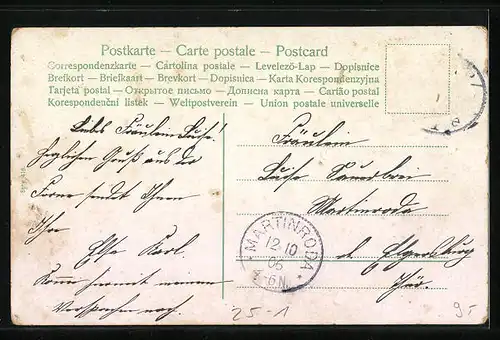 Postkarte — Carte postale — Postcard
Correspondenzkarte — Cartolina postale — Levelező-Lap — Dopisnice
Brefkort — Briefkaart — Brevkort — Dopisnica — Karta Korespondenzyjna
Tarjeta postal — Открытое письмо — Дописна карта — Cartão postal
Korespondenční listek — Weltpostverein — Union postale universelle
Liebes Fräulein Luise!
Herzlichen Gruß aus der
Ferne sendet Ihnen
Ihre
Else Karl.
Komme hiermit meinem
Versprechen nach.
Fräulein
Luise Sauerbrei
Martinroda
b. Elgersburg
Thür.
MARTINRODA
12.10
06
6-N.
25-1
9.-